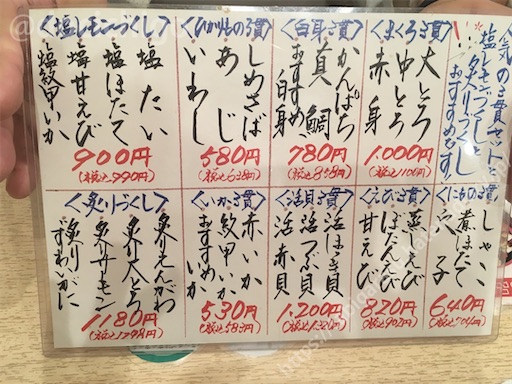 人気の3貫セットと
塩レモンづくしと
炙りづくし
おすすめです
<まぐろ3貫>
大とろ
中とろ
赤身
1,000円
(税込1,100円)
<白身3貫>
かんぱち
真鯛
おすすめ白身
780円
(税込858円)
<ひかりもの3貫>
しめさば
あじ
いわし
580円
(税込638円)
<塩レモンづくし>
塩たい
塩ほたて
塩甘えび
塩紋甲いか
900円
(税込990円)
<にもの3貫>
しゃこ
煮ほたて
穴子
640円
(税込704円)
<えび3貫>
蒸えび
ぼたんえび
甘えび
820円
(税込902円)
<活貝3貫>
活ほっき貝
活つぶ貝
活赤貝
1,200円
(税込1,320円)
<いか3貫>
赤いか
紋甲いか
おすすめいか
530円
(税込583円)
<炙りづくし>
炙りえんがわ
炙り大とろ
炙りサーモン
炙りずわいがに
1180円
(税込1298円)